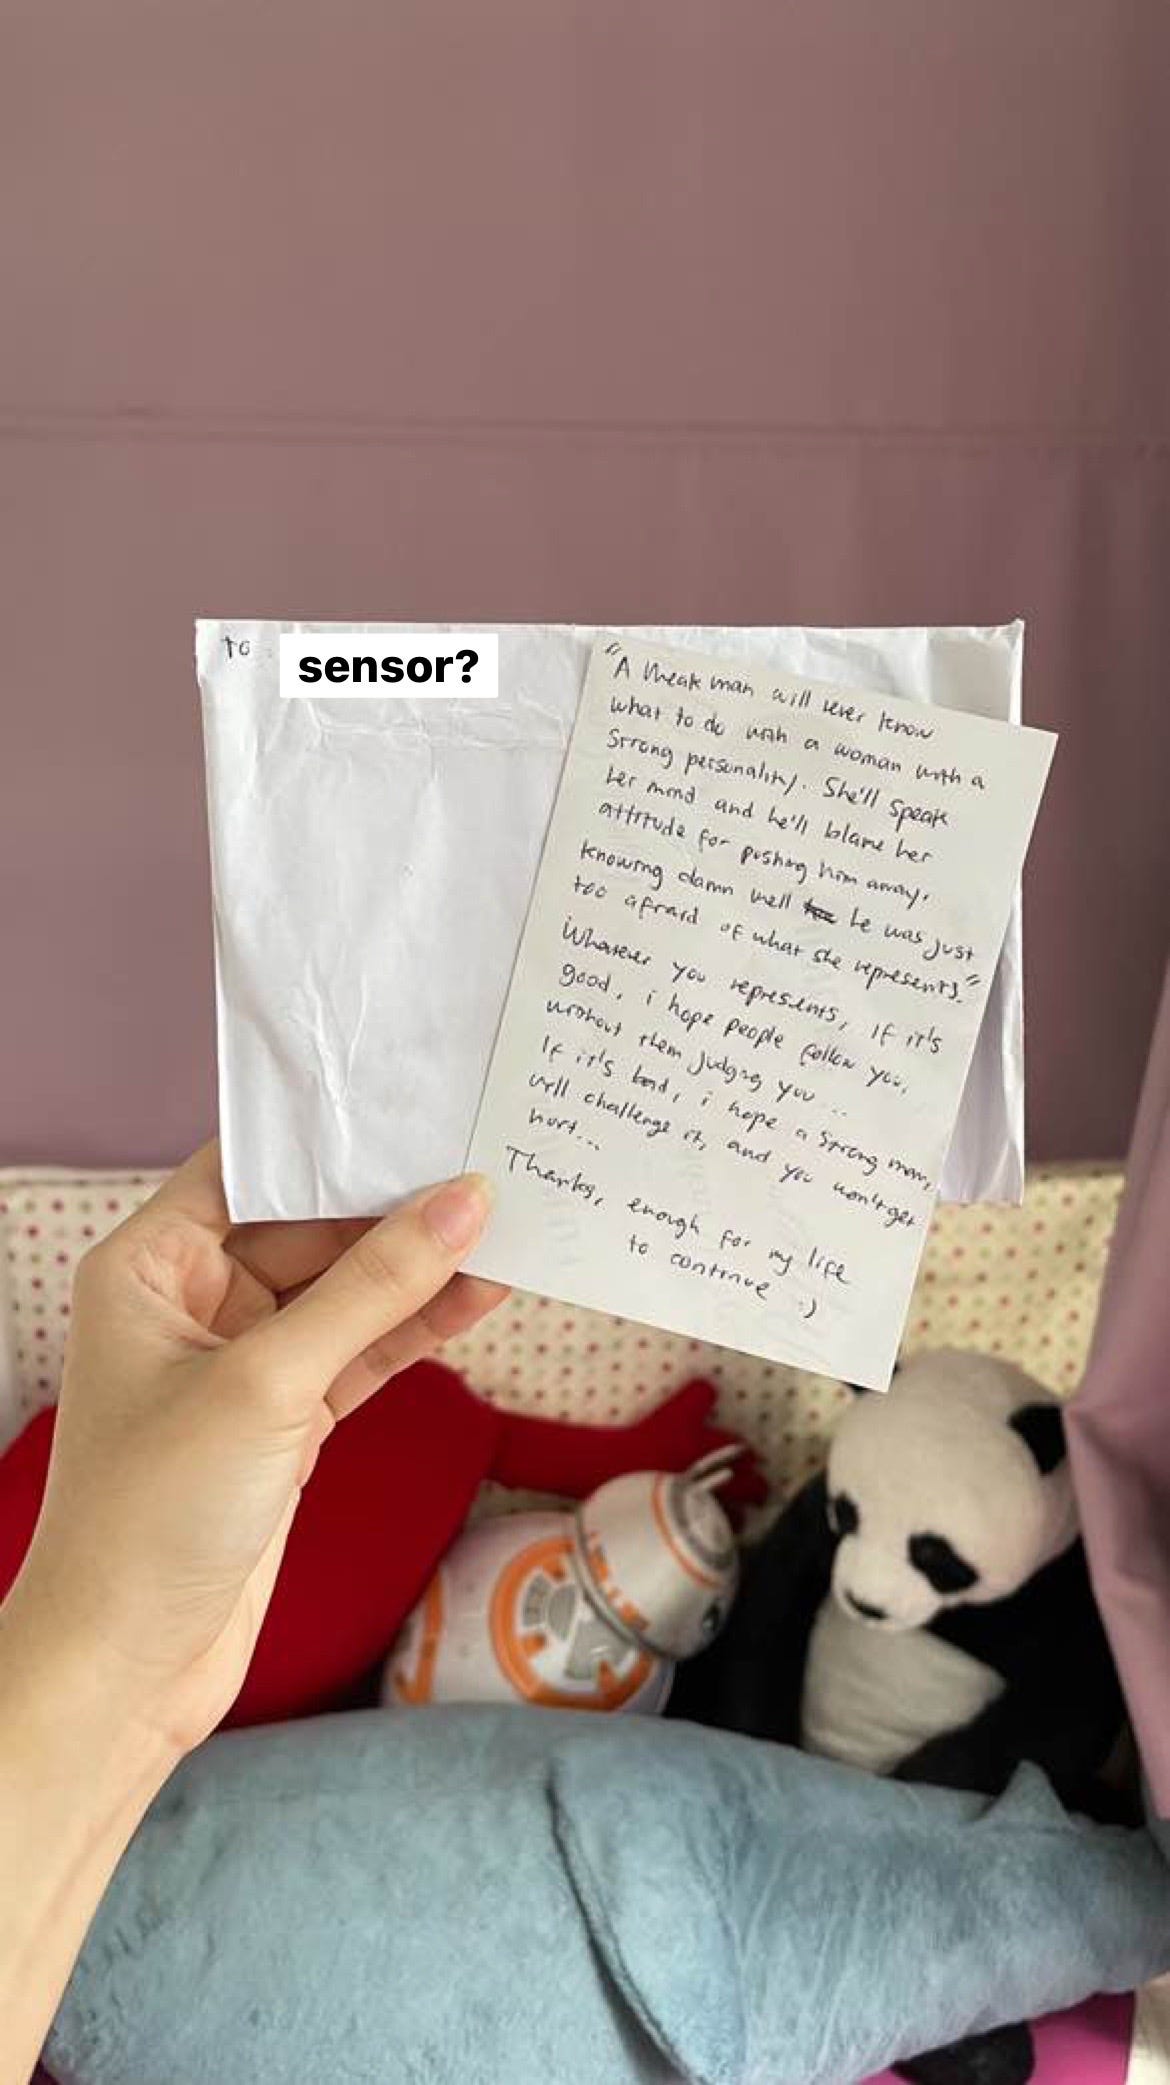 To
sensor?
"A weak man will never know
what to do with a woman with a
strong personality. She'll speak
her mind and he'll blame her
attitude for pushing him away,
knowing damn well he was just
too afraid of what she represents."
Whatever you represents, if it's
good, i hope people follow you,
without them judging you...
If it's bad, i hope a strong man,
will challenge it, and you won't get
hurt...
Thanks, enough for my life
to continue :)